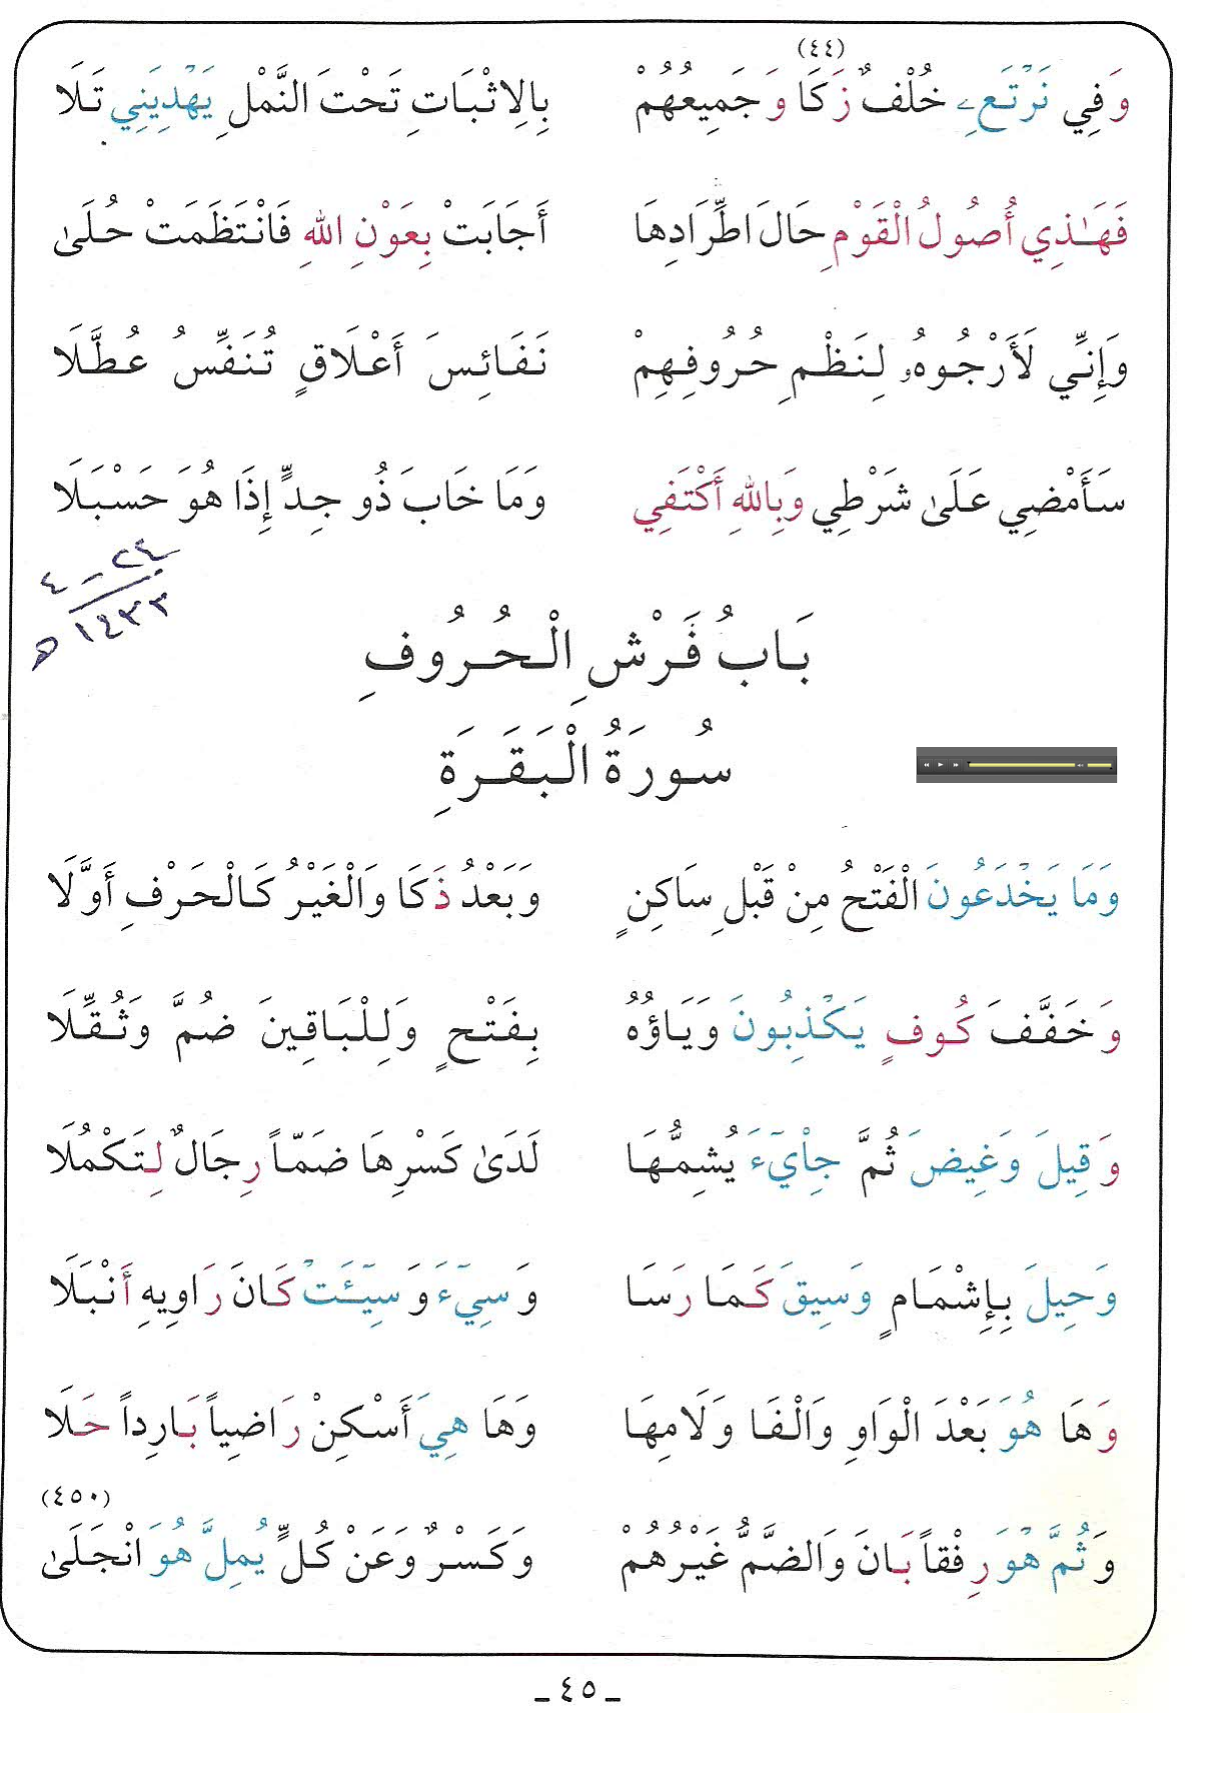 (٤٤)
وَفِي نَرْتَعِے خُلْفٌ زَكَا وَجَمِيعُهُمْ بِالِاثْبَاتِ تَحْتَ النَّمْلِ يَهْدِيَنِي تَلَا
فَهَـٰذِي أُصُولُ الْقَوْمِ حَالَ اطِّرَادِهَا أَجَابَتْ بِعَوْنِ اللهِ فَانْتَظَمَتْ حُلَىٰ
وَإِنِّي لَأَرْجُوهُ لِنَظْمِ حُرُوفِهِمْ نَفَائِسَ أَعْلَاقٍ تُنَفِّسُ عُطَّلَا
سَأَمْضِي عَلَىٰ شَرْطِي وَبِاللهِ أَكْتَفِي وَمَا خَابَ ذُو جِدٍّ إِذَا هُوَ حَسْبَلَا
٢٤ – ٤
١٤٣٣ هـ
بَابُ فَرْشِ الْحُرُوفِ
سُورَةُ الْبَقَرَةِ
وَمَا يَخْدَعُونَ الْفَتْحُ مِنْ قَبْلِ سَاكِنٍ وَبَعْدُ ذَكَا وَالْغَيْرُ كَالْحَرْفِ أَوَّلَا
وَخَفَّفَ كُوفٍ يَكْذِبُونَ وَيَاؤُهُ بِفَتْحٍ وَلِلْبَاقِينَ ضُمَّ وَثُقِّلَا
وَقِيلَ وَغِيضَ ثُمَّ جِاْيٓءَ يُشِمُّهَا لَدَىٰ كَسْرِهَا ضَمّاً رِجَالٌ لِتَكْمُلَا
وَحِيلَ بِإِشْمَامٍ وَسِيقَ كَمَا رَسَا وَسِيٓءَ وَسِيٓـَٔتْ كَانَ رَاوِيهِ أَنْبَلَا
وَهَا هُوَ بَعْدَ الْوَاوِ وَالْفَا وَلَامِهَا وَهَا هِيَ أَسْكِنْ رَاضِياً بَارِداً حَلَا
وَثُمَّ هْوَ رِفْقاً بَانَ وَالضَّمُّ غَيْرُهُمْ وَكَسْرٌ وَعَنْ كُلٍّ يُمِلَّ هُوَ انْجَلَىٰ
(٤٥٠)
ـ ٤٥ ـ